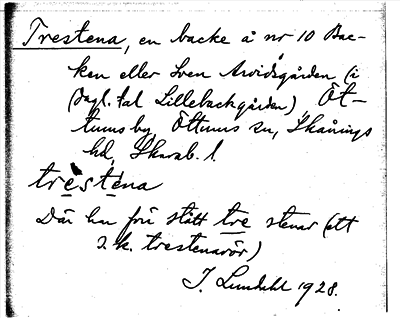 Trestena, en backe å nr 10 Bac-
ken eller Sven Arvidsgården (i
dagl. tal Lillebackgården) Öt-
tums by, Öttums sn, Skånings
hd, Skarab. l.
trestena
Där har förr stått tre stenar (ett
s. k. trestenarör)
J. Lundahl 1928.